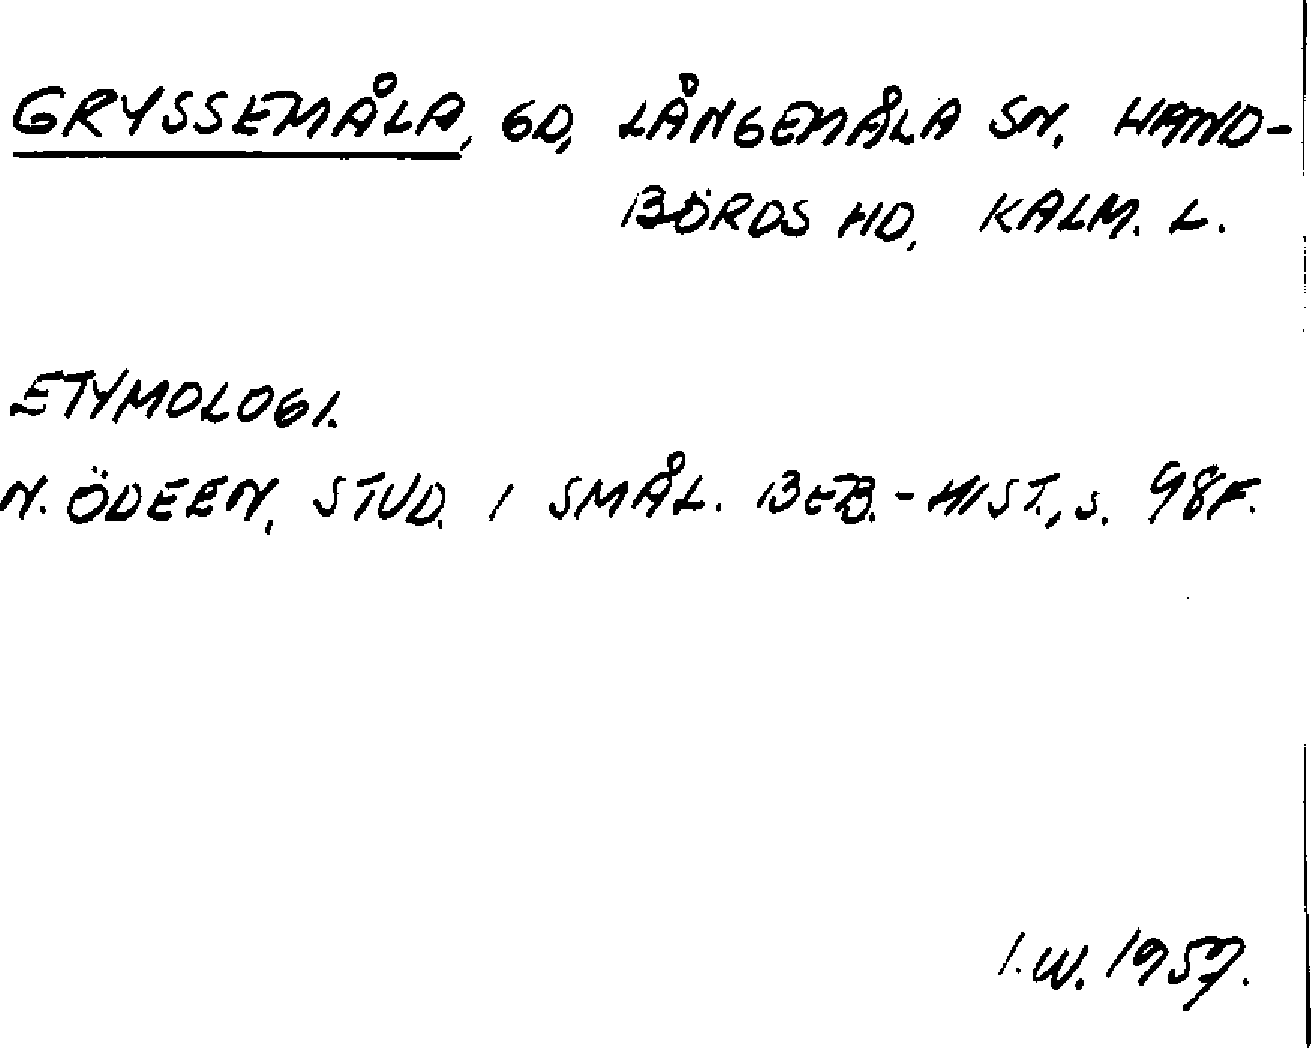 GRYSSEMÅLA, GD, LÅNGEMÅLA SN. HAND-
BÖRDS HD, KALM. L.
ETYMOLOGI.
N. ÖDEEN, STUD. I SMÅL. BEB.-HIST., S. 98F.
I.W. 1957.